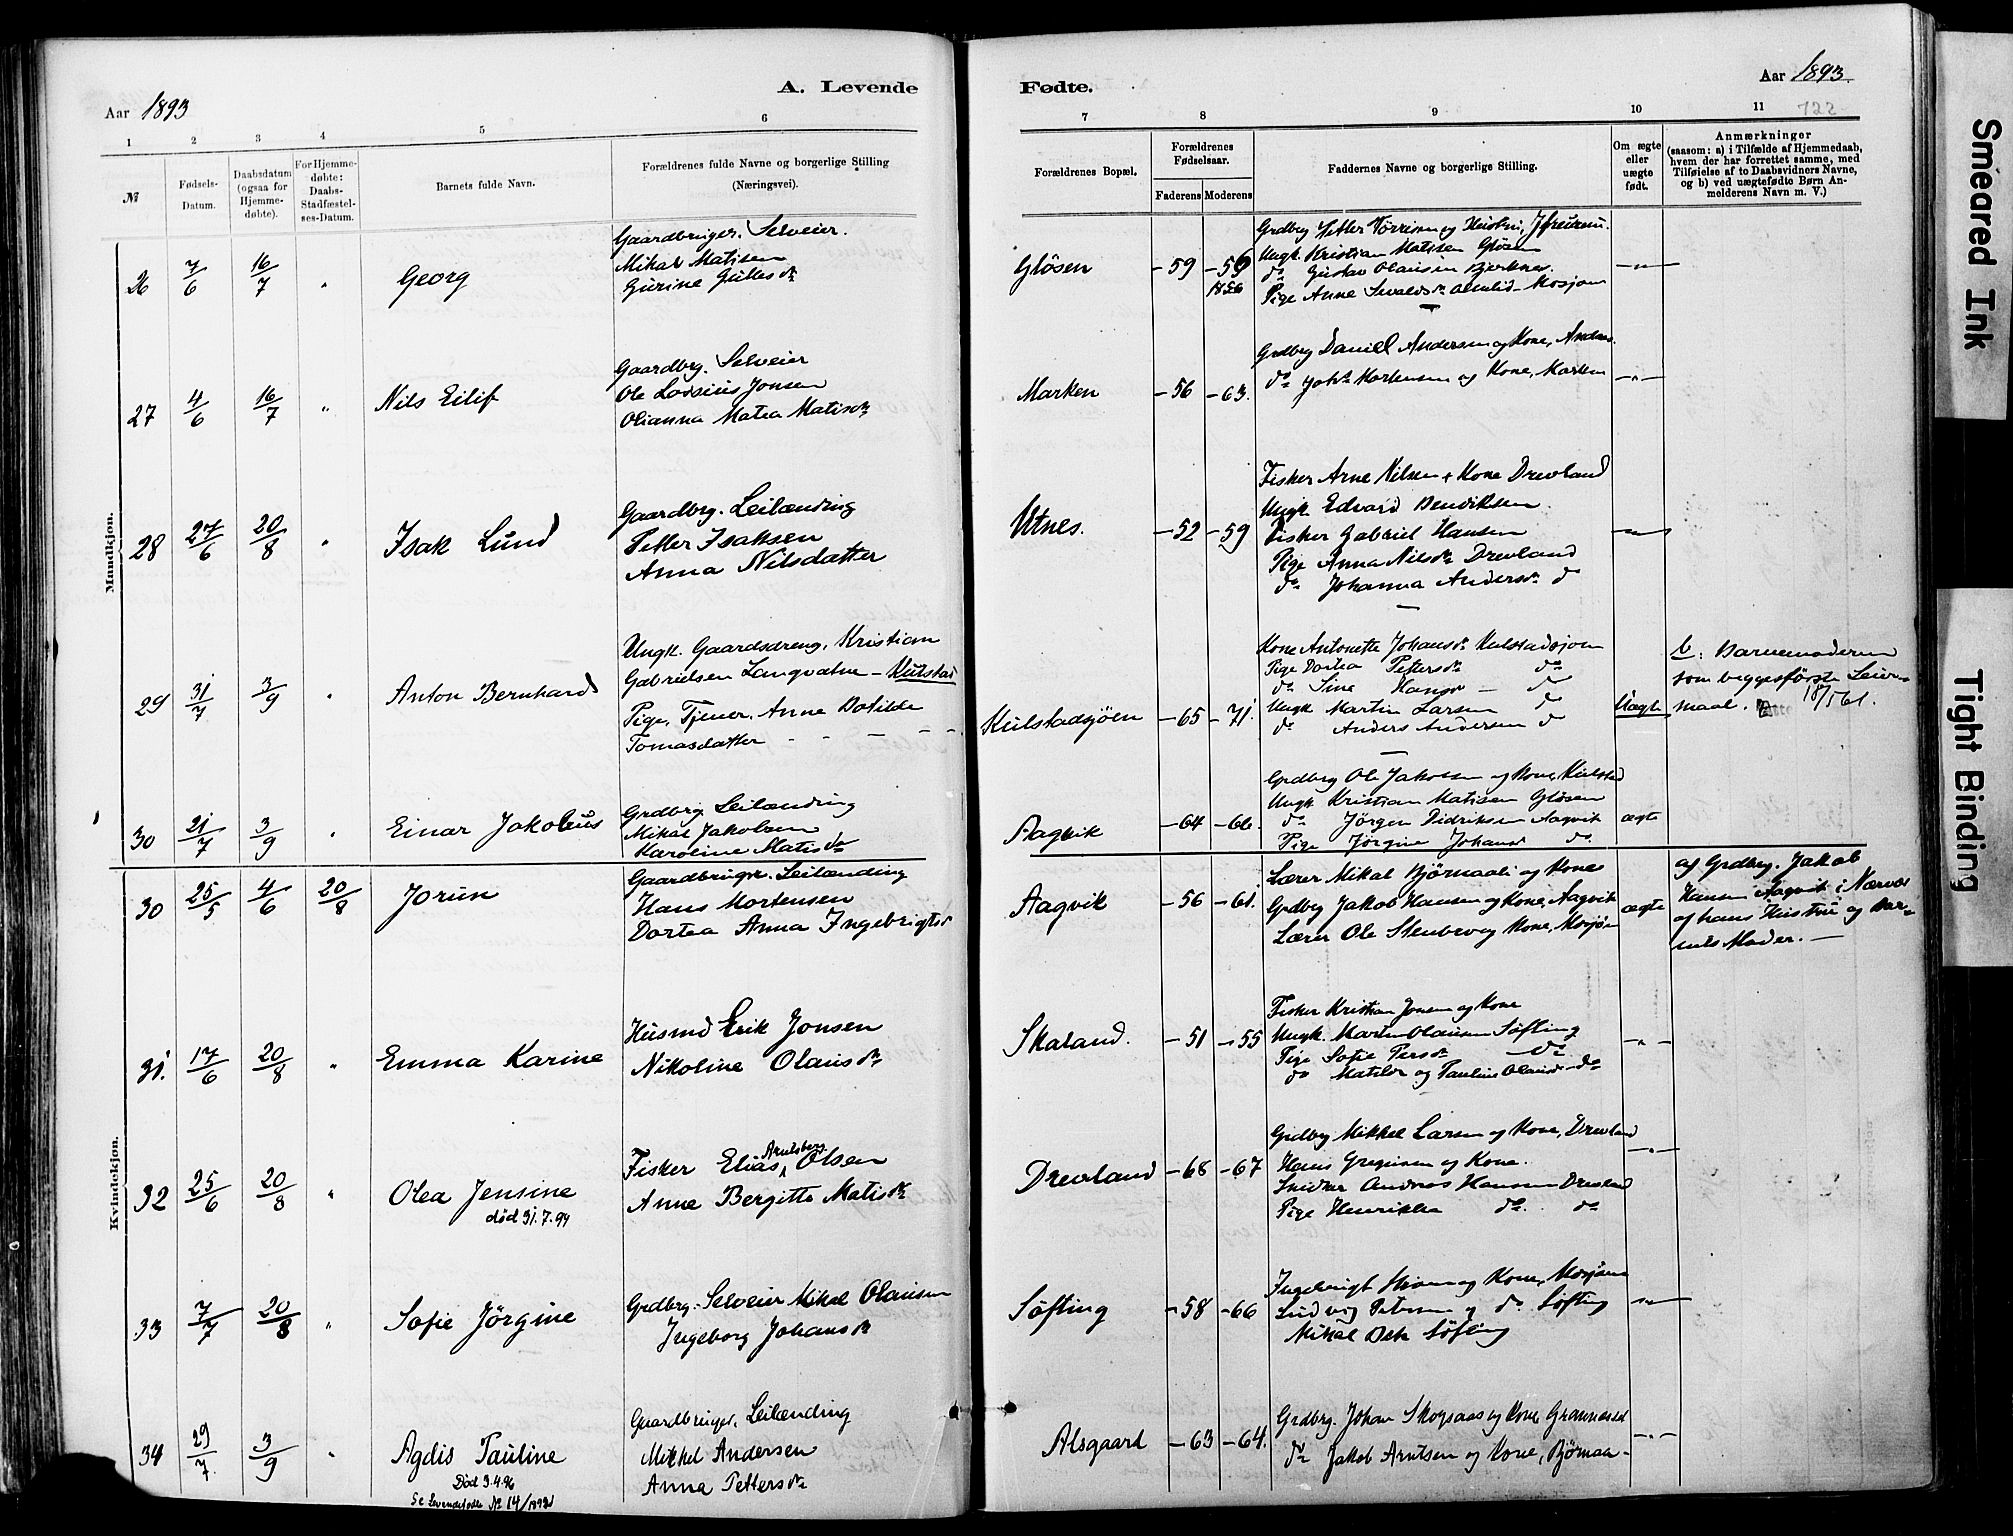 A. Levende
Aar 1893
1 2 3 4 5 6
№
Fødsels-Datum.
Daabsdatum (ogsaa for Hjemmedøbte).
For Hjemmedøbte: Daabs-Stadfæstelses-Datum.
Barnets fulde Navn.
Forældrenes fulde Navne og borgerlige Stilling (Næringsvei).
Mandkjøn.
26 7/6 16/7 " Georg
Gaardbruger. Selveier.
Mikal Matisen
Gurine
27 4/6 16/7 " Nils Eilif
Gaardbrg. Selveier
Ole Jonsen
Olianna Matea Matisdr
28 27/6 20/8 " Isak Lund
Gaardbrg. Leilænding
Petter Isaksen
Anna Nilsdatter
29 31/7 3/9 " Anton Bernhard
Ungk. Gaardsdreng, Kristian
Gabrielsen Langvatne – Kulstad
Pige, Tjener, Anne Botilde
Tomasdatter
30 21/7 3/9 " Einar Jakobus
Grdbrg. Leilænding
Mikal Jakobsen
Karoline Matisdr
Kvindekjøn.
30 25/5 4/6 20/8 Jorun
Gaardbruger. Leilænding
Hans Mortensen
Dortea Anna Ingebrigtsd
31. 17/6 20/8 " Emma Karine
Husmd Erik Jonsen
Nikoline Olausdr
32 25/6 20/8 " Olea Jensine
død 31.7.94
Fisker Elias Arntsberg Olsen
Anne Bergitte Matisdr
33 7/7 20/8 " Sofie Jørgine
Grdbrg. Selveier Mikal Olausen
Ingeborg Johansdr
34 29/7. 3/9 " Agdis Pauline
Død 3.4.96
Se Levendefødte No 14/1892
Gaardbruger, Leilænding
Mikkel Andersen
Anna Pettersdr
Fødte.
Aar 1893.
722
7 8 9 10 11
Forældrenes Bopæl.
Forældrenes Fødselsaar.
Faderens Moderens
Faddernes Navne og borgerlige Stilling.
Om ægte eller uægte født.
Anmærkninger
(saasom: a) i Tilfælde af Hjemmedaab,
hvem der har forrettet samme, med
Tilføielse af to Daabsvidners Navne,
og b) ved uægtefødte Børn An-
melderens Navn m. V.)
Gløsen – 59 – 59 1856
Grdbrg Petter og Hustru,
Ungk. Kristian Matisen Gløsen
do Gustav Olausen Bjerknes.
Pige Anne Sivaldsdr Mosjøen
– " –
Marken – 56 – 63.
Grdbrg Daniel Andersen og Kone, Andaas.
do Johs Mortensen og Kone, Marken
– " –
Utnes. – 52 – 59
Fisker Arne Nilsen + Kone Drevland
Ungk. Edvard Hendriksen.
Fisker Gabriel Hansen
Pige Anna Nilsdr Drevland
do Johanna Andersdr do
– " –
Kulstadsjøen – 65 – 71.
Kone Antonette Johansdr Kulstadsjøen
Pige Dortea Pettersdr do
do Sine Hansdr – do
Ungk Martin Larsen do
do Anders Andersen do
Uægte
b. Barnemoderen
som begges første Leier-
maal. 18/561.
Aagvik – 64 – 66.
Grdbrg Ole Jakobsen og Kone, Kulstad
Ungk Kristian Matisen Gløsen
do Jørgen Didriksen Aagvik
Pige Jørgine Johansd do
ægte
Aagvik – 56 – 61.
Lærer Mikal Bjørnaali og Kone
Grdbrg Jakob Hansen og Kone, Aagvik
Lærer Ole og Kone, Mosjøen
ægte
af Grdbrg. Jakob
Hansen Aagvik i Nærvær
af hans Hustru og Bar-
nets Moder. –
Skaland. – 51 – 55
Fisker Kristian Jonsen og Kone
Ungk. Martin Olausen Søfting
Pige Sofie Persdr do
do Matilde og Pauline Olausdr do
– " –
Drevland – 68 – 67
Grdbrg Mikkel Larsen og Kone, Drevland
Hans Gregersen og Kone.
Snedker Andreas Hansen Drevland
Pige Henrikke do. do
– " –
Søfting – 58 – 66
Ingebrigt og Kone, Mosjøen
Ludvig Petersen og do Søfting
Mikal Søfting
– " –
Alsgaard – 63 – 64.
Grdbrg. Johan Skogsaas og Kone,
do Jakob Arntsen og Kone, Bjørnaa –
– " –
Smeared Ink
Tight Binding